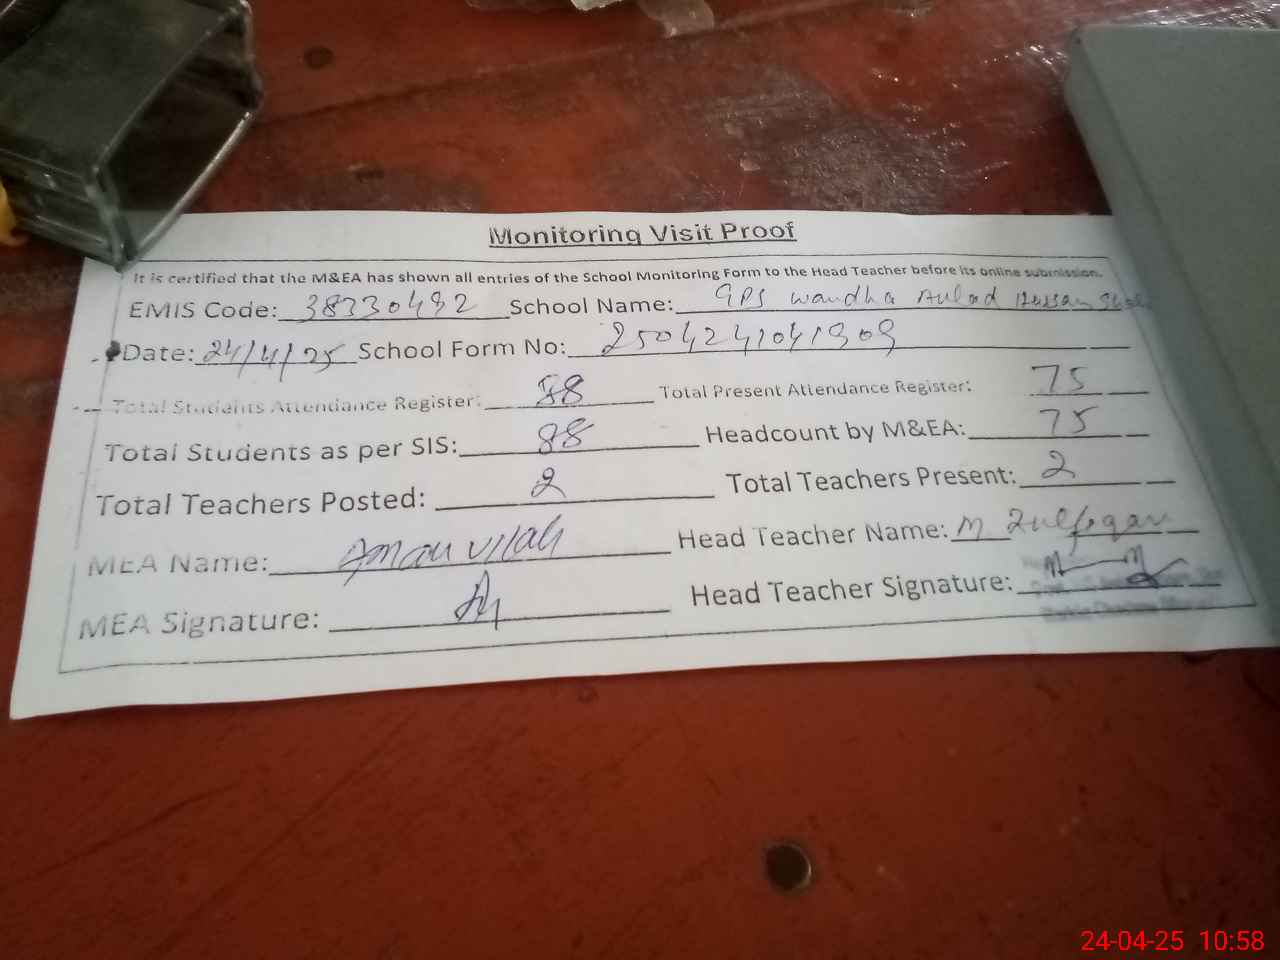 Monitoring Visit Proof
It is certified that the M&EA has shown all entries of the School Monitoring Form to the Head Teacher before its online submission.
EMIS Code: 38330482 School Name: GPS Wandha Aulad Hassan
Date: 24/4/25 School Form No:
Total Students Attendance Register: 88 Total Present Attendance Register: 75
Total Students as per SIS: 88 Headcount by M&EA: 75
Total Teachers Posted: 2 Total Teachers Present: 2
MEA Name: Aman Ullah Head Teacher Name: M Zulfiqar
MEA Signature: Head Teacher Signature:
24-04-25 10:58